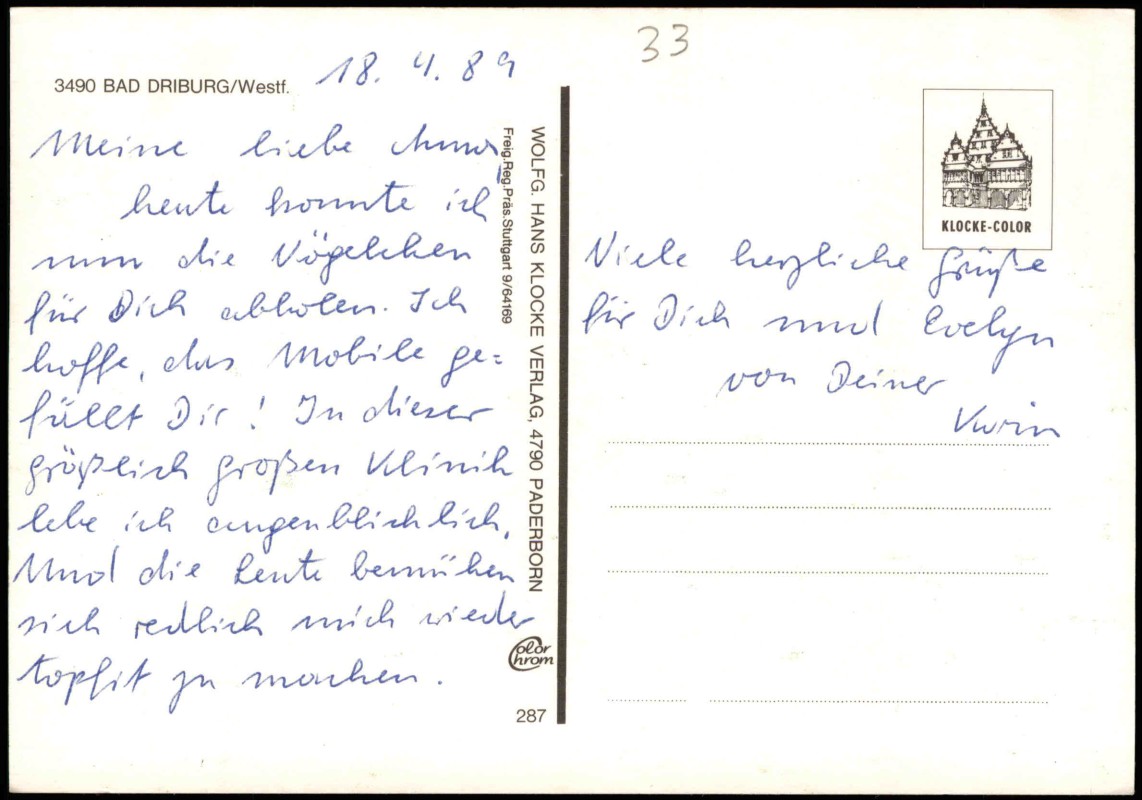 33
3490 BAD DRIBURG/Westf.
18. 4. 89
Meine liebe
heute konnte ich
nun die Vögelchen
für Dich abholen. Ich
hoffe, das Mobile ge=
fällt Dir! In dieser
gräßlich großen Klinik
lebe ich augenblicklich.
Und die Leute bemühen
sich redlich mich wieder
topfit zu machen.
WOLFG. HANS KLOCKE VERLAG, 4790 PADERBORN
Freig.Reg.Präs.Stuttgart 9/64169
Color
Chrom
287
KLOCKE-COLOR
Viele herzliche Grüße
für Dich und Evelyn
von Deiner
Karin